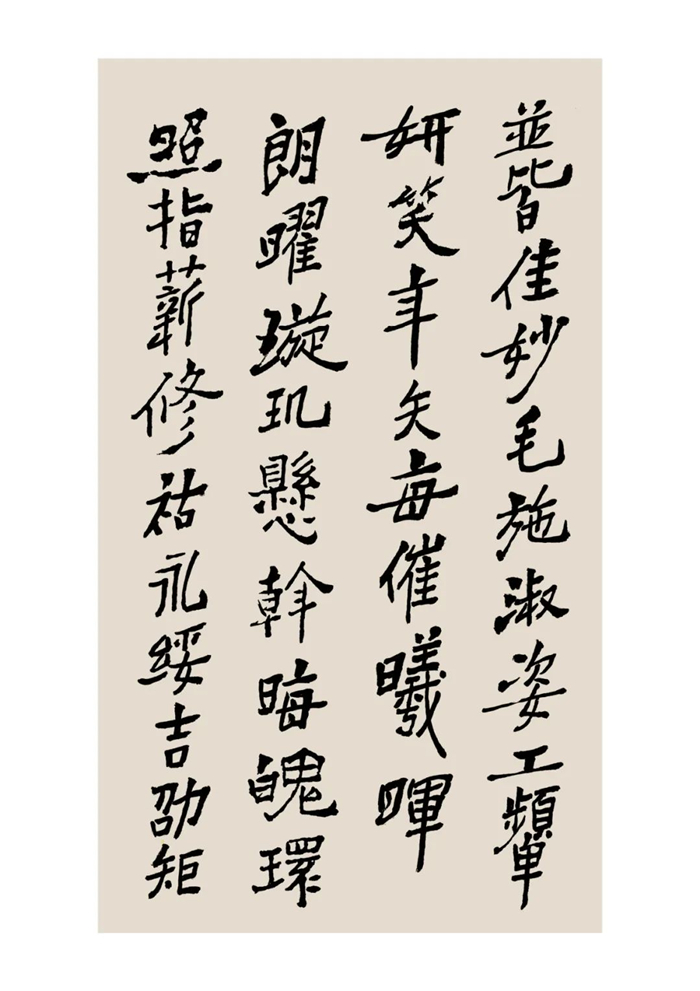 並皆佳妙毛施淑姿工顰
妍笑年矢每催曦暉
朗曜璇璣懸斡晦魄環
照指薪修祜永綏吉劭矩